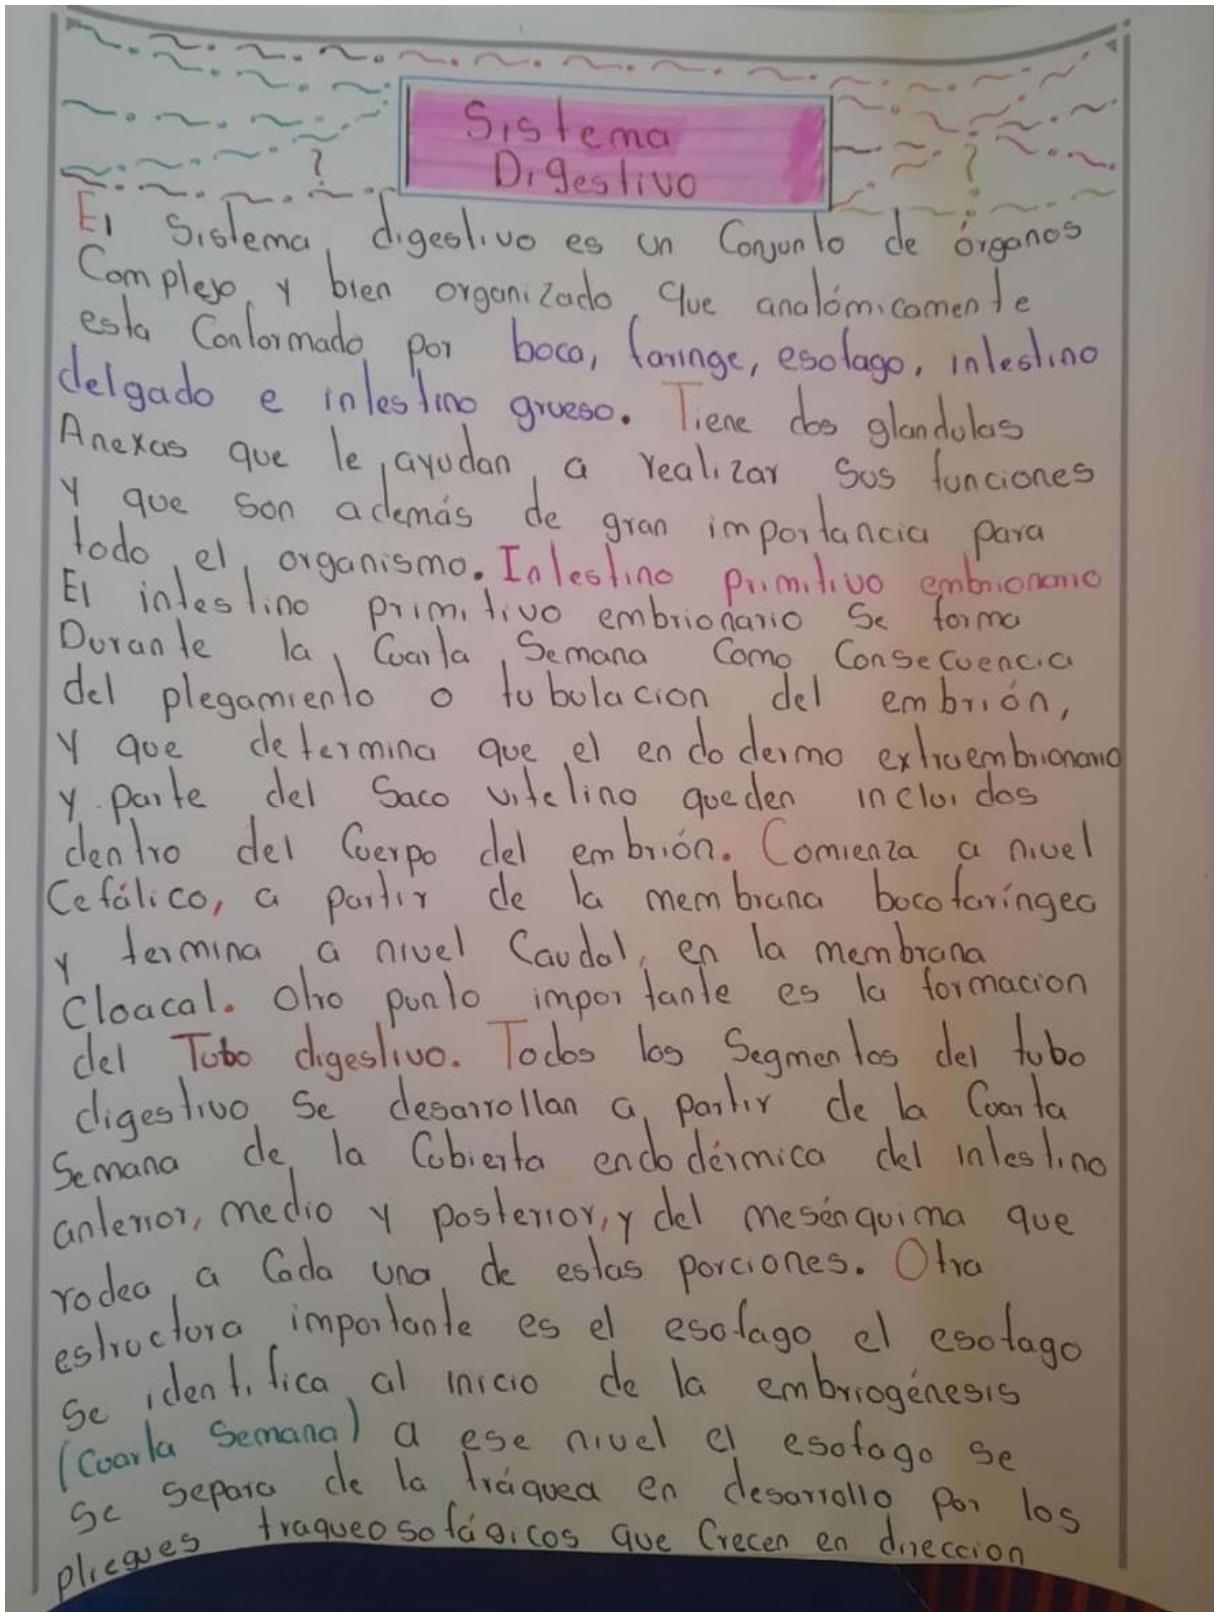 Sistema
Digestivo
El Sistema digestivo es un Conjunto de órganos
Complejo y bien organizado que anatómicamente
esta Conformado por boca, faringe, esofago, intestino
delgado e intestino grueso. Tiene dos glandulas
Anexas que le ayudan a realizar Sus funciones
y que son además de gran importancia para
todo el organismo. Intestino Primitivo embrionario
El intestino primitivo embrionario Se forma
Durante la Cuarta Semana Como Consecuencia
del plegamiento o tubulacion del embrión,
y que determina que el endodermo extraembrionario
y parte del Saco vitelino queden incluidos
dentro del Cuerpo del embrión. Comienza a nivel
Cefálico, a partir de la membrana bocofaríngea
y termina a nivel Caudal, en la membrana
Cloacal. Otro punto importante es la formacion
del Tubo digestivo. Todos los Segmentos del tubo
digestivo Se desarrollan a partir de la Cuarta
Semana de la Cubierta endodérmica del intestino
anterior, medio y posterior, y del mesénquima que
rodea a Cada una de estas porciones. Otra
estructura importante es el esofago el esofago
Se identifica al inicio de la embriogénesis
(Cuarta Semana) a ese nivel el esofago se
Se Separa de la tráquea en desarrollo por los
pliegues traqueosofágicos que Crecen en direccion